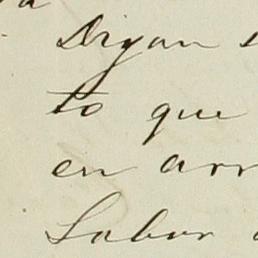 Digan
to que
en arr
Labor